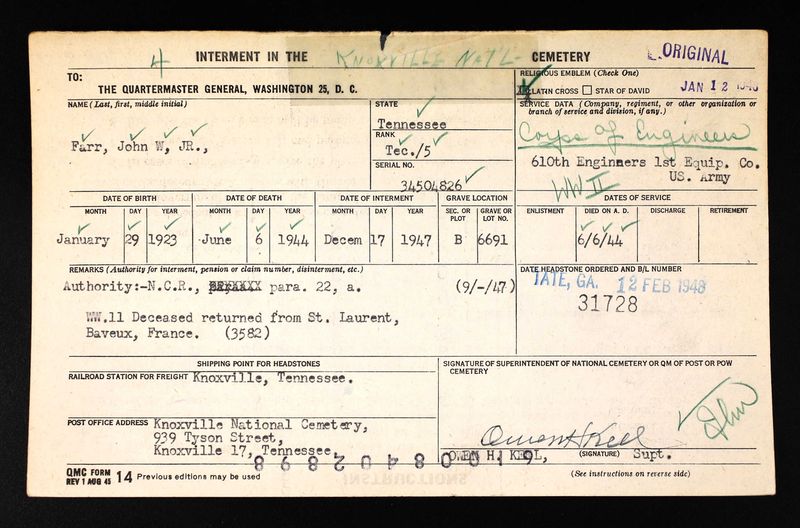 4 INTERMENT IN THE KNOXVILLE NAT'L- CEMETERY
ORIGINAL
TO:
THE QUARTERMASTER GENERAL, WASHINGTON 25, D. C.
RELIGIOUS EMBLEM (Check One)
LATIN CROSS STAR OF DAVID
JAN 12
NAME (Last, first, middle initial)
Farr, John W, JR.,
STATE
Tennessee
RANK
Tec./5
SERIAL NO.
34504826
SERVICE DATA (Company, regiment, or other organization or branch of service and division, if any.)
Corps of Engineers
610th Engineers 1st Equip. Co.
US. Army
WW II
DATE OF BIRTH DATE OF DEATH DATE OF INTERMENT GRAVE LOCATION DATES OF SERVICE
MONTH DAY YEAR MONTH DAY YEAR MONTH DAY YEAR SEC. OR PLOT GRAVE OR LOT NO. ENLISTMENT DIED ON A. D. DISCHARGE RETIREMENT
January 29 1923 June 6 1944 Decem 17 1947 B 6691 6/6/44
REMARKS (Authority for interment, pension or claim number, disinterment, etc.)
Authority:-N.C.R., para. 22, a. (9/-/47)
WW.11 Deceased returned from St. Laurent,
Baveux, France. (3582)
DATE HEADSTONE ORDERED AND B/L NUMBER
TATE, GA. 12 FEB 1948
31728
SHIPPING POINT FOR HEADSTONES
RAILROAD STATION FOR FREIGHT Knoxville, Tennessee.
POST OFFICE ADDRESS Knoxville National Cemetery,
939 Tyson Street,
Knoxville 17, Tennessee.
SIGNATURE OF SUPERINTENDENT OF NATIONAL CEMETERY OR QM OF POST OR POW CEMETERY
Owen H Keel
OWEN H. KEEL, (SIGNATURE) Supt.
QMC FORM
REV 1 AUG 45 14 Previous editions may be used
(See instructions on reverse side)
INSTRUCTIONS